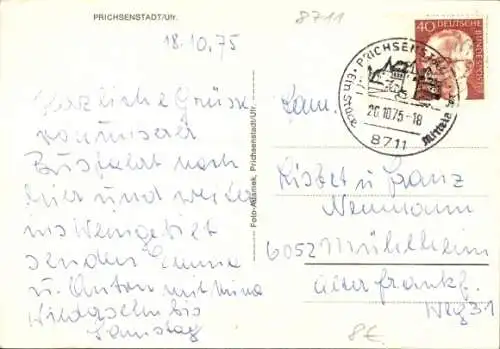 PRICHSENSTADT/Ufr.
8711
18.10.75
40
DEUTSCHE BUNDESPOST
PRICHSENSTADT
26.10.75-18
8711
Herzliche Grüsse
von unserer
Busfahrt nach
hier und weiter
ins Weingebiet
senden Emma
u. Anton mit Mina
Wiedersehn bis
Samstag
Foto-Ausinek, Prichsenstadt/Ufr.
Fam.
Lisbet u Franz
Neumann
6052 Mühlheim
alter frankf.
Weg 31
8€